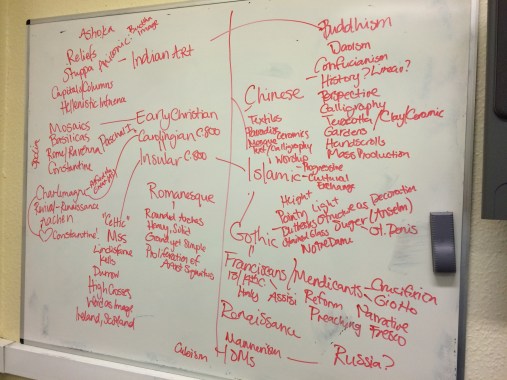 Ashoka
Reliefs
Stuppa
Aniconic: Buddha Image
Indian Art
Capitals/Columns
Hellenistic Influence
Mosaics
Basilicas
Rome/Ravenna
Constantine
Early Christian
Carolingian c.800
Insular c.800
Charlemagne
Revival-Renaissance
Aachen
Constantine
"Celtic"
Mss
Lindisfarne
Kells
Durrow
High Crosses
Word as Image
Ireland, Scotland
Romanesque
Rounded Arches
Heavy, Solid
Grand yet Simple
Proliferation of
Artist Signatures
Cubism
Buddhism
Daoism
Confucianism
History? Linear?
Chinese
Perspective
Calligraphy
Terracotta/Clay/Ceramic
Gardens
Handscrolls
Mass Production
Textiles
Paradise
Mosque Ceramics
Text/Calligraphy
Worship
Islamic
Progressive
Cultural
Exchange
Gothic
Height
Pointy Light
Buttresses
Structure as Decoration
Stained Glass
Suger (Anselm)
St. Denis
Notre Dame
Franciscans/Mendicants
Italy Assisi
Crucifixion
Giotto
Reform
Narrative
Preaching
Fresco
Renaissance
Mannerism
OMs
Russia?